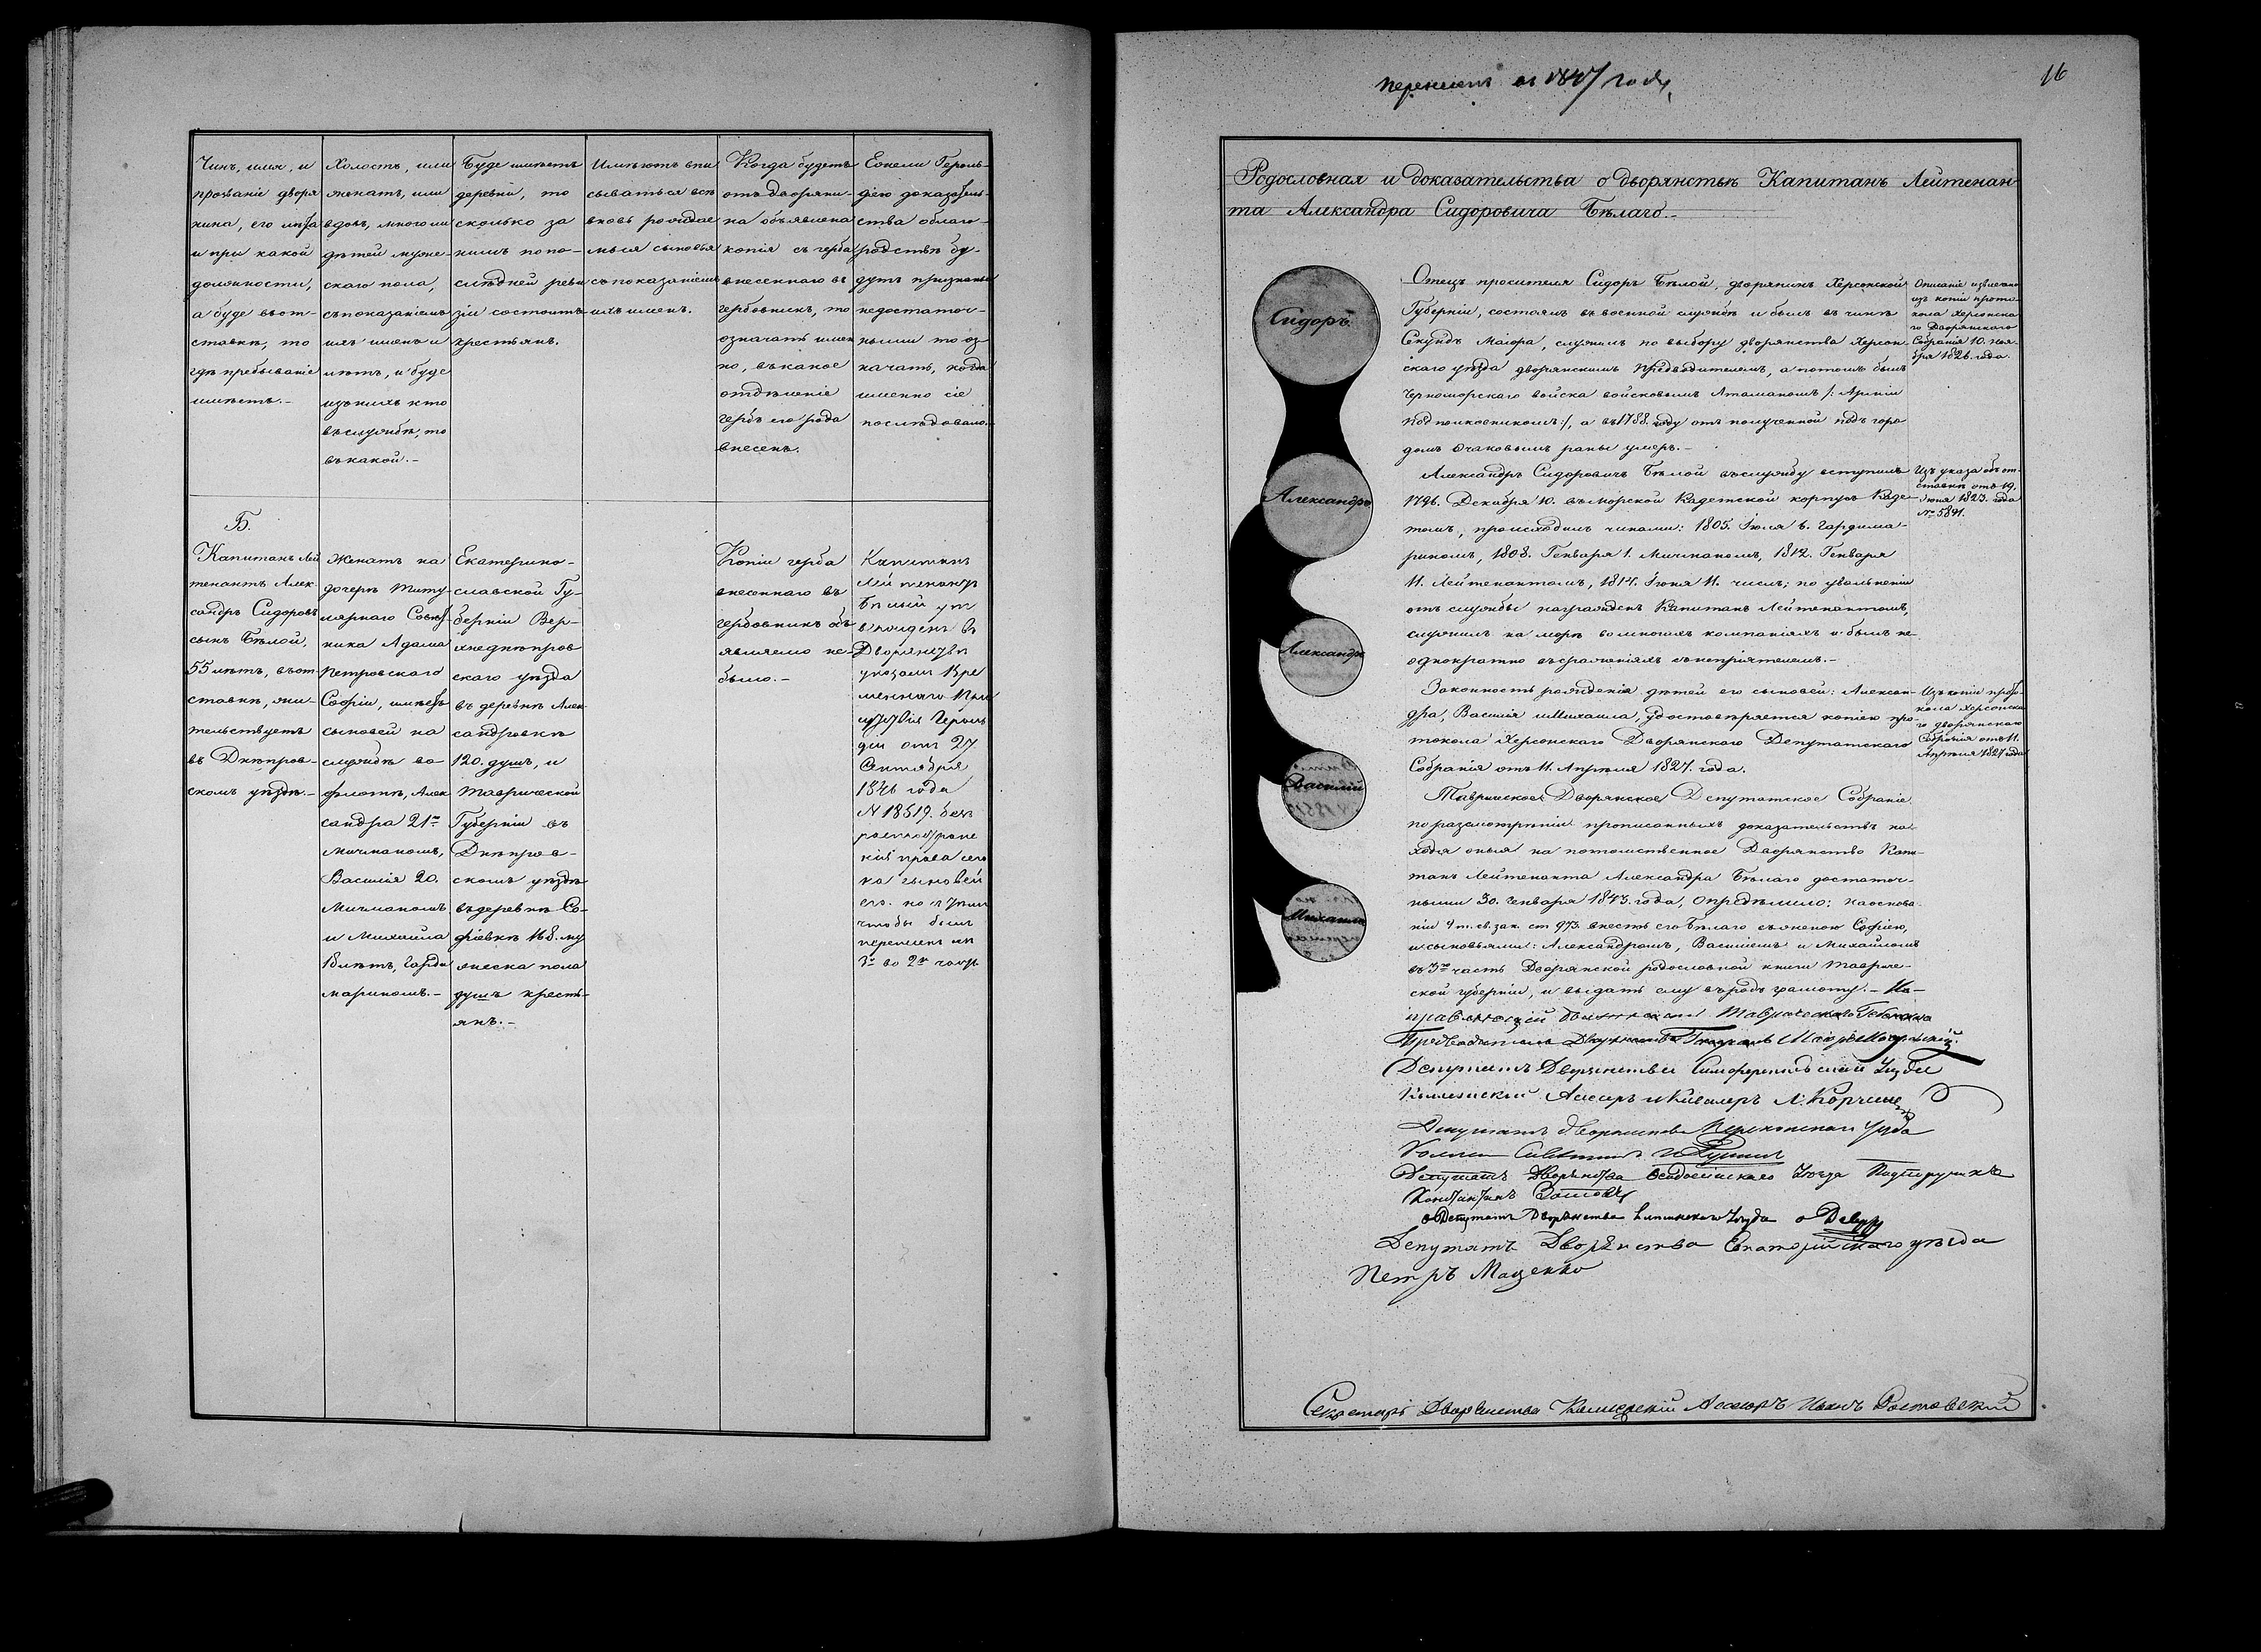 Чинъ, имя, и
прозваніе дворя
нина, его лѣта
и при какой
должности,
а буде въ от-
ставкѣ, то
гдѣ пребываніе
имѣетъ.-
Холостъ, или
женатъ, или
вдовъ, много ли
дѣтей муже-
скаго пола,
съ показаніемъ
ихъ именъ и
лѣтъ, и буде
изъ нихъ кто
въ службѣ, то
въ какой.-
Буде имѣетъ
деревни, то
сколько за
нимъ по по-
слѣдней реви
зіи состоитъ
крестьянъ.
Имѣютъ впи
сываться всѣ
вновь рождае
мые сыновья
съ показаніемъ
ихъ именъ.
Когда будетъ
отъ дворяни-
на объявлена
копія съ герба
внесеннаго въ
гербовникъ, то
означать имен
но, въ какое
отдѣленіе
гербъ его рода
внесенъ.
Ежели Героль-
діею доказатель-
ства о благо-
родствѣ бу-
дутъ признаны
недостаточ-
ными то оз
начать, когда
именно сіе
послѣдовало.-
Б.
Капитанъ Лей
тенантъ Алек-
сандръ Сидоровъ
сынъ Бѣлой,
55 лѣтъ, въ от-
ставкѣ, жи-
тельствуетъ
въ Днѣпров-
скомъ уѣздѣ.-
Женатъ на
дочерѣ Титу-
лярнаго Совѣт
ника Адама
Петровскаго
Софіи, имѣетъ
сыновей на
службѣ во
флотѣ, Алек
сандра 21го
Мичманомъ,
Василія 20.
Мичманомъ
и Михаила
18 лѣтъ, Гарде
мариномъ.-
Екатерино-
славской Гу-
берніи Вер-
хнеднѣпров
скаго уѣзда
въ деревнѣ Алек
сандровкѣ
120. душъ, и
Таврической
Губерніи въ
Днѣпров-
скомъ уѣздѣ
въ деревнѣ Со-
фіевкѣ 168. му
жеска пола
душъ кресть-
янъ.-
Копіи герба
внесеннаго въ
гербовникъ объ
являемо не
было.-
Капитанъ
Лейтенантъ
Бѣлый ут
вержденъ въ
Дворянствѣ
указомъ Вре
меннаго При
сутствія Героль
діи отъ 27
Сентября
1846 года
N 18519. безъ
распростране
нія права сего
на сыновей
его. но с тѣмъ
чтобы былъ
перенесенъ изъ
3й во 2ю часть
16
перенесенъ въ 1847 году
Родословная и доказательства о дворянствѣ Капитанъ Лейтенан-
та Александра Сидоровича Бѣлаго.-
Сидоръ
Александръ
Александръ
Василій
Михаилъ
Отецъ просителя Сидоръ Бѣлой, дворянинъ Херсонской
Губерніи, состоялъ въ военной службѣ и былъ въ чинѣ
Секундъ Маіора, служилъ по выбору дворянства Херсон-
скаго уѣзда дворянскимъ Предводителемъ, а потомъ былъ
Черноморскаго войска войсковымъ Атаманомъ /: Арміи
Подполковникомъ :/, а въ 1788. году отъ полученной подъ горо
домъ Очаковымъ раны умеръ.-
Описаніе извлечено
изъ копіи прото-
кола Херсонска
го Дворянскаго
Собранія 10. Ноя-
бря 1826. года.
Александръ Сидоровичъ Бѣлой въ службу вступилъ
1796. Декабря 10. въ Морской Кадетской корпусъ Каде-
томъ, происходилъ чинами: 1805. Іюля 6. Гардема-
риномъ, 1808. Генваря 1. Мичманомъ, 1812. Генваря
11. Лейтенантомъ, 1817. Іюня 11. числ; по увольненіи
отъ службы награжденъ Капитанъ Лейтенантомъ,
служилъ на морѣ во многихъ компаніяхъ и былъ не-
однократно въ сраженіяхъ съ непріятелемъ.-
Изъ указа объ от-
ставкѣ отъ 19.
Іюня 1823. года
№ 5891.
Законность рожденія дѣтей его сыновей: Алексан-
дра, Василія и Михаила, удостовѣряется копіею про-
токола Херсонскаго Дворянскаго Депутатскаго
Собранія отъ 11. Апрѣля 1827. года.
Изъ копіи прото-
кола Херсонска
го дворянскаго
Собранія отъ 11.
Апрѣля 1827 года
Таврическое Дворянское Депутатское Собраніе
по разсмотрѣніи прописанныхъ доказательствъ на-
ходя оныя на потомственное Дворянство Капи-
танъ Лейтенанта Александра Бѣлаго достаточ-
ными 30. Генваря 1843. года, опредѣлило: на основа-
ніи 9 т. св. зак. ст 973. внесть его Бѣлаго съ женою Софіею,
и сыновьями: Александромъ, Василіемъ и Михаиломъ
въ 3ю часть Дворянской родословной книги Тавриче-
ской губерніи, и выдать ему въ родъ грамоту.- Ис-
правляющій должность Таврическаго
Предводителя Дворянства
Депутатъ Дворянства Симферопольскаго Уѣзда
Коллежскій Ассесоръ и Кавалеръ
Депутатъ Дворянства Перекопскаго уѣзда
Депутатъ Дворянства Ѳеодосійскаго Уѣзда Подпоручикъ
Константинъ
Депутатъ Дворянства Ялтинскаго Уѣзда
Депутатъ Дворянства Евпаторійскаго уѣзда
Петръ Маценко
Секретарь Дворянства Коллежскій Ассесоръ Иванъ Ростовскій